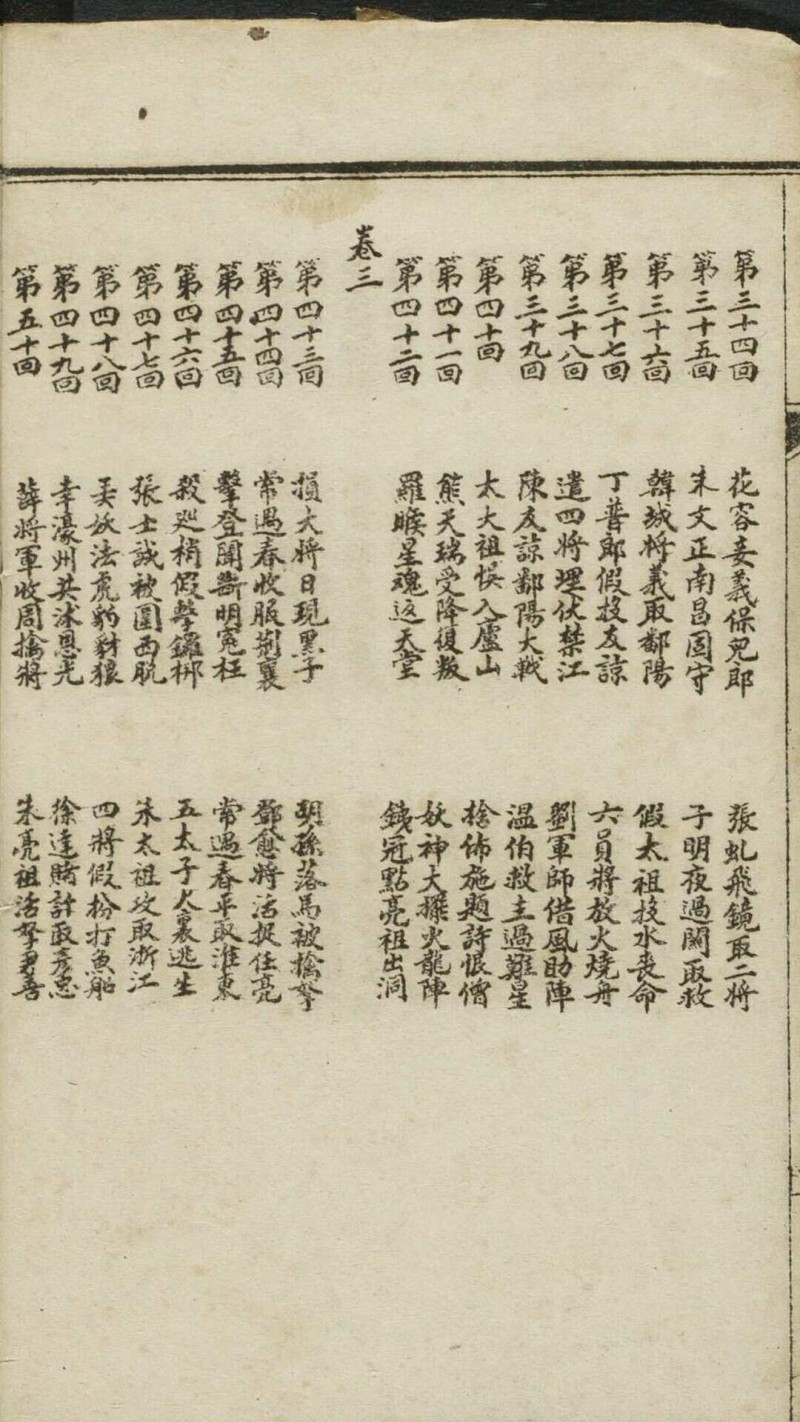 第三十四回 花容妾義保兒郎 張虬飛鏡取二將
第三十五回 朱文正南昌固守 子明夜過關取救
第三十六回 韓城將義取鄱陽 假太祖投水喪命
第三十七回 丁普郎假投友諒 六員將放火燒舟
第三十八回 遣四將埋伏禁江 劉軍師借風助陣
第三十九回 陳友諒鄱陽大戰 溫伯救主過難星
第四十回 太大祖悞入廬山 捨佈施題詩恨僧
第四十一回 熊天瑞受降復叛 妖神大擺火龍陣
第四十二回 羅睺星魂返天堂 銕冠點亮祖出洞
卷三
第四十三回 損大將日現黑子 胡孫落馬被擒拏
第四十四回 常遇春收服荊襄 鄧愈將活捉任亮
第四十五回 擊登聞斷明寃枉 常遇春平取淮東
第四十六回 殺巡梢假擊鑼梆 五太子犬裏逃生
第四十七回 張士誠被圍西脫 朱太祖攻取浙江
第四十八回 妖法虎豹豺狼 四將假扮打魚船
第四十九回 幸濠州共沐恩光 徐達賭計取彥忠
第五十回 薛將軍收周擒將 朱亮祖活拏君善